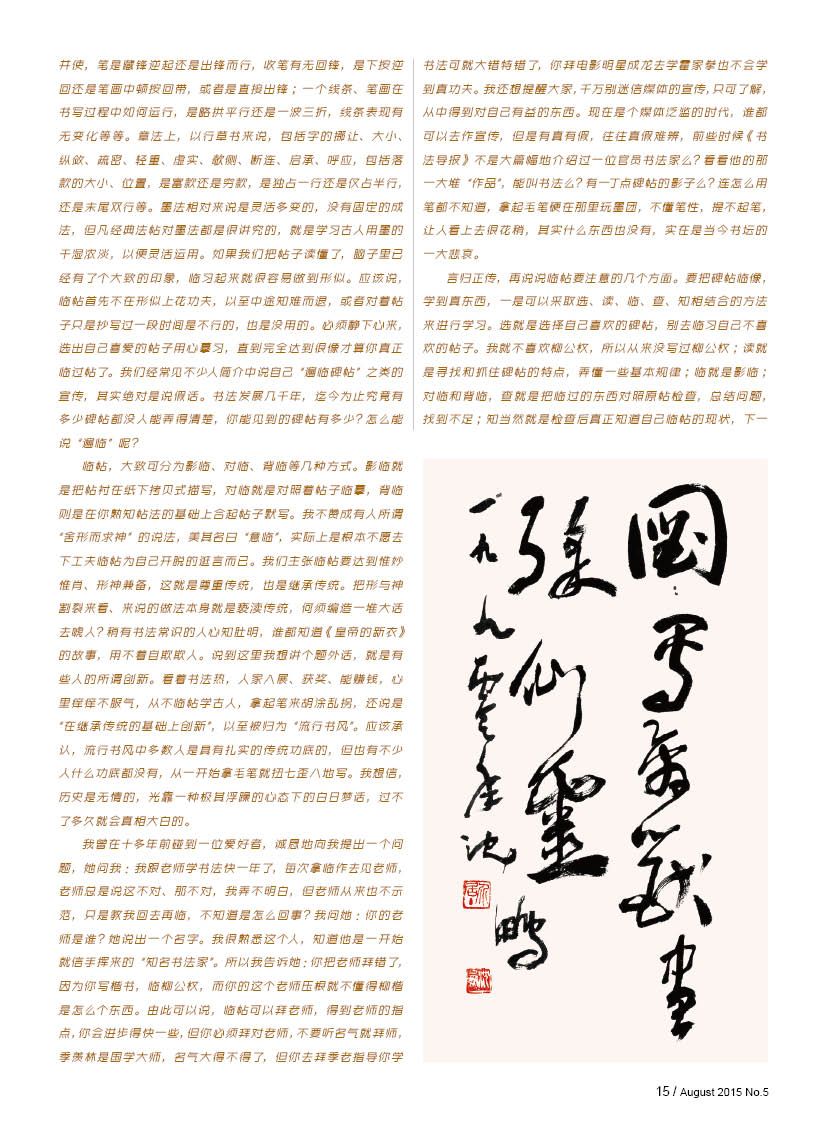 并使，笔是藏锋逆起还是出锋而行，收笔有无回锋，是下按逆
回还是笔画中顿按回带，或者是直接出锋；一个线条、笔画在
书写过程中如何运行，是略拱平行还是一波三折，线条表现有
无变化等等。章法上，以行草书来说，包括字的挪让、大小、
纵敛、疏密、轻重、虚实、欹侧、断连、启承、呼应，包括落
款的大小、位置，是富款还是穷款，是独占一行还是仅占半行，
还是末尾双行等。墨法相对来说是灵活多变的，没有固定的成
法，但凡经典法帖对墨法都是很讲究的，就是学习古人用墨的
干湿浓淡，以便灵活运用。如果我们把帖子读懂了，脑子里已
经有了个大致的印象，临习起来就很容易做到形似。应该说，
临帖首先不在形似上花功夫，以至中途知难而退，或者对着帖
子只是抄写过一段时间是不行的，也是没用的。必须静下心来，
选出自己喜爱的帖子用心摹习，直到完全达到很像才算你真正
临过帖了。我们经常见不少人简介中说自己“遍临碑帖”之类的
宣传，其实绝对是说假话。书法发展几千年，迄今为止究竟有
多少碑帖都没人能弄得清楚，你能见到的碑帖有多少？怎么能
说“遍临”呢？
临帖，大致可分为影临、对临、背临等几种方式。影临就
是把帖衬在纸下拷贝式描写，对临就是对照着帖子临摹，背临
则是在你熟知帖法的基础上合起帖子默写。我不赞成有人所谓
“舍形而求神”的说法，美其名曰“意临”，实际上是根本不愿去
下工夫临帖为自己开脱的诳言而已。我们主张临帖要达到惟妙
惟肖、形神兼备，这就是尊重传统，也是继承传统。把形与神
割裂来看、来说的做法本身就是亵渎传统，何须编造一堆大话
去唬人？稍有书法常识的人心知肚明，谁都知道《皇帝的新衣》
的故事，用不着自欺欺人。说到这里我想讲个题外话，就是有
些人的所谓创新。看着书法热，人家入展、获奖、能赚钱，心
里痒痒不服气，从不临帖学古人，拿起笔来胡涂乱拐，还说是
“在继承传统的基础上创新”，以至被归为“流行书风”。应该承
认，流行书风中多数人是具有扎实的传统功底的，但也有不少
人什么功底都没有，从一开始拿毛笔就扭七歪八地写。我想信，
历史是无情的，光靠一种极其浮躁的心态下的白日梦话，过不
了多久就会真相大白的。
我曾在十多年前碰到一位爱好者，诚恳地向我提出一个问
题，她问我：我跟老师学书法快一年了，每次拿临作去见老师，
老师总是说这不对、那不对，我弄不明白，但老师从来也不示
范，只是教我回去再临，不知道是怎么回事？我问她：你的老
师是谁？她说出一个名字。我很熟悉这个人，知道他是一开始
就信手挥来的“知名书法家”。所以我告诉她：你把老师拜错了，
因为你写楷书，临柳公权，而你的这个老师压根就不懂得柳楷
是怎么个东西。由此可以说，临帖可以拜老师，得到老师的指
点，你会进步得快一些，但你必须拜对老师，不要听名气就拜师，
季羡林是国学大师，名气大得不得了，但你去拜季老指导你学
书法可就大错特错了，你拜电影明星成龙去学霍家拳也不会学
到真功夫。我还想提醒大家，千万别迷信媒体的宣传，只可了解，
从中得到对自己有益的东西。现在是个媒体泛监的时代，谁都
可以去作宣传，但是有真有假，往往真假难辨，前些时候《书
法导报》不是大篇幅地介绍过一位官员书法家么？看看他的那
一大堆“作品”，能叫书法么？有一丁点碑帖的影子么？连怎么用
笔都不知道，拿起毛笔硬在那里玩墨团，不懂笔性，提不起笔，
让人看上去很花稍，其实什么东西也没有，实在是当今书坛的
一大悲哀。
言归正传，再说说临帖要注意的几个方面。要把碑帖临像，
学到真东西，一是可以采取选、读、临、查、知相结合的方法
来进行学习。选就是选择自己喜欢的碑帖，别去临习自己不喜
欢的帖子。我就不喜欢柳公权，所以从来没写过柳公权；读就
是寻找和抓住碑帖的特点，弄懂一些基本规律；临就是影临；
对临和背临，查就是把临过的东西对照原帖检查，总结问题，
找到不足；知当然就是检查后真正知道自己临帖的现状，下一
國寫禽獸畫
彩仙靈
一九九零年沈
鵬
15 / August 2015 No.5